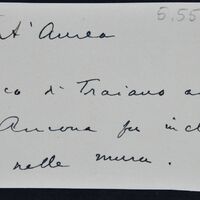 5.55
t' Aurea
co di Traiano a
Ancona fu incl
nelle mura.